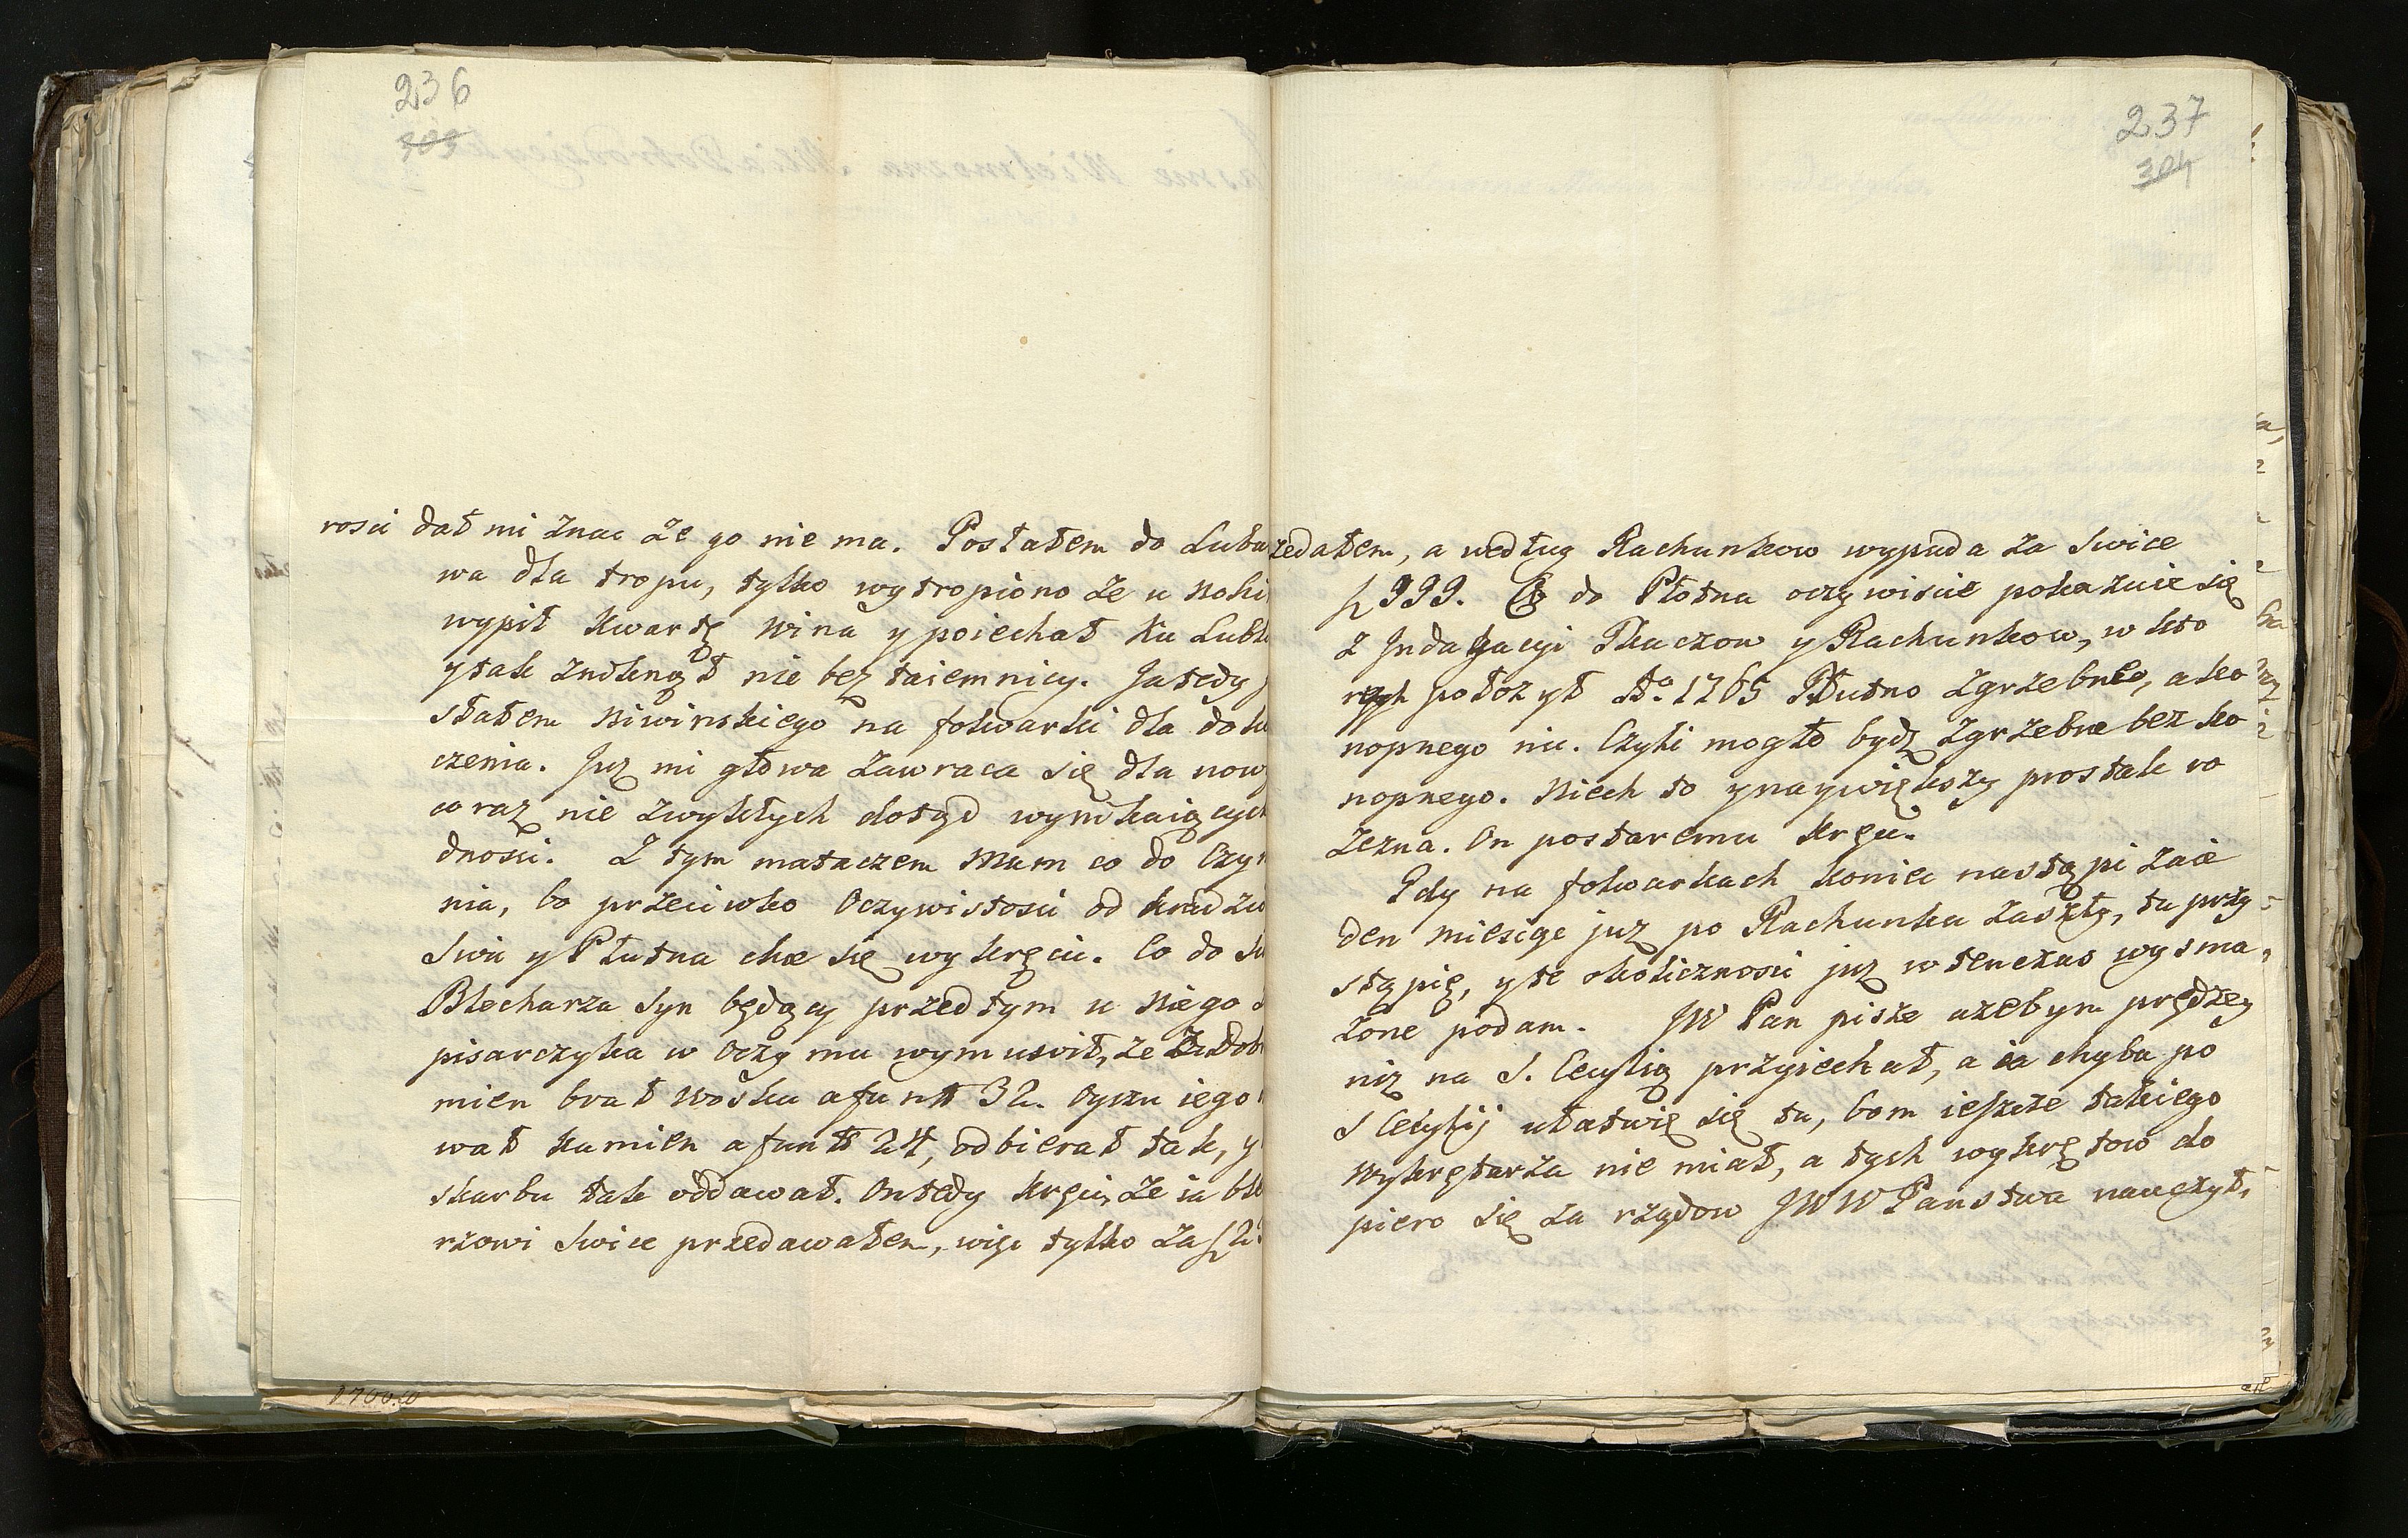 236
303
rosci dał mi znac że go nie ma. Posłałem do Luba
wa dla tropu, tylko wytropiono że u
wypił kwartę wina y poiechał ku
y tak zniknął nie bez taiemnicy. Ja tedy
słałem Niwinskiego na folwarki dla
czenia. Juz mi głowa zawraca się dla
coraz nie zwykłych dotąd
dnosci. Z tym mataczem mam co do
nia, bo przeciwko Oczywistosci od
Swic y Płutna chce się wykręcic. Co do
Blecharza Syn będący przedtym u Niego
pisarczyka w Oczy mu wymuwił, że
mien brał Wosku a funt 32. Oycu iego
wał kamien a funt 24, odbierał tak, y
skarbu tak oddawał. On tedy kręci, że ia
rzowi Swice przedawałem, więc tylko za
8700.10
237
304
zedałem, a według Rachunkow wypada za Swice
999. Co do Płotna oczywiscie pokazuie się
z Indagacyi Tkaczow y Rachunkow, w kto
rych połozył 1765 Płutno Zgrzebne, a ko
nopnego nic. Czyli mogło bydz Zgrzebne bez ko
nopnego. Niech to y naywiększy prostak ro
zezna. On postaremu kręci.
Gdy na folwarkach koniec nastąpi za ie
den miesiąc juz po Rachunku zaszły, tu przy
stąpię, y te okolicznosci juz wtenczas wysma
zone podam. JW Pan pisze azebym prędzey
niz na S. Cecylią przyiechał, a ia chyba po
S Cecylij ułatwię się tu, bom ieszcze takiego
Wykrętarza nie miał, a tych wykrętow do
piero się za rządow JWW Panstwa nauczył.